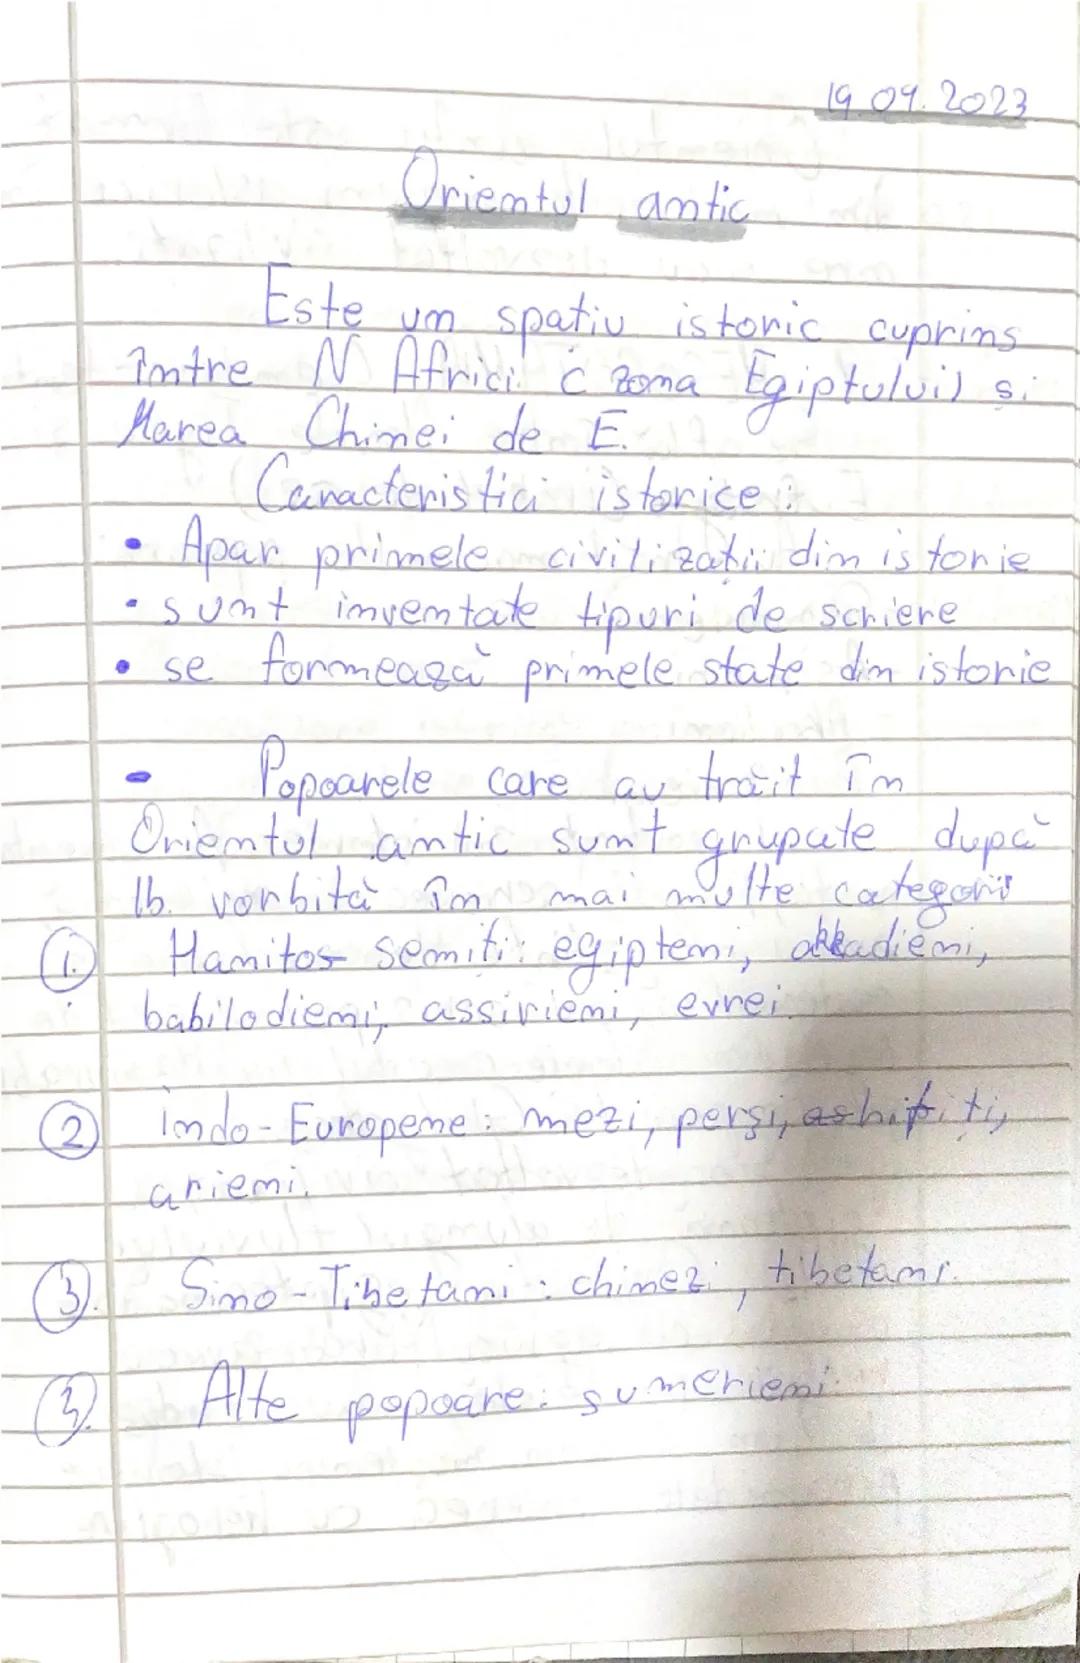 19.09.2023
Orientul antic
Este un spatiu istoric cuprins
între N Africi (zona Egiptului) si
Marea Chinei de E.
Caracteristici istorice:
• Apar primele civilizații din istorie
• sunt inventate tipuri de scriere
• se formează primele state din istorie
- Popoarele care au trăit în
Orientul antic sunt grupate după
lb. vorbită în mai multe categorii
1. Hamitos semiti: egipteni, akkadieni,
babilodieni, assirieni, evrei.
2 indo-Europene: mezi, perși, hititi,
arieni.
3. Sino-Tibetani: chinezi, tibetani.
3. Alte popoare: sumerieni.